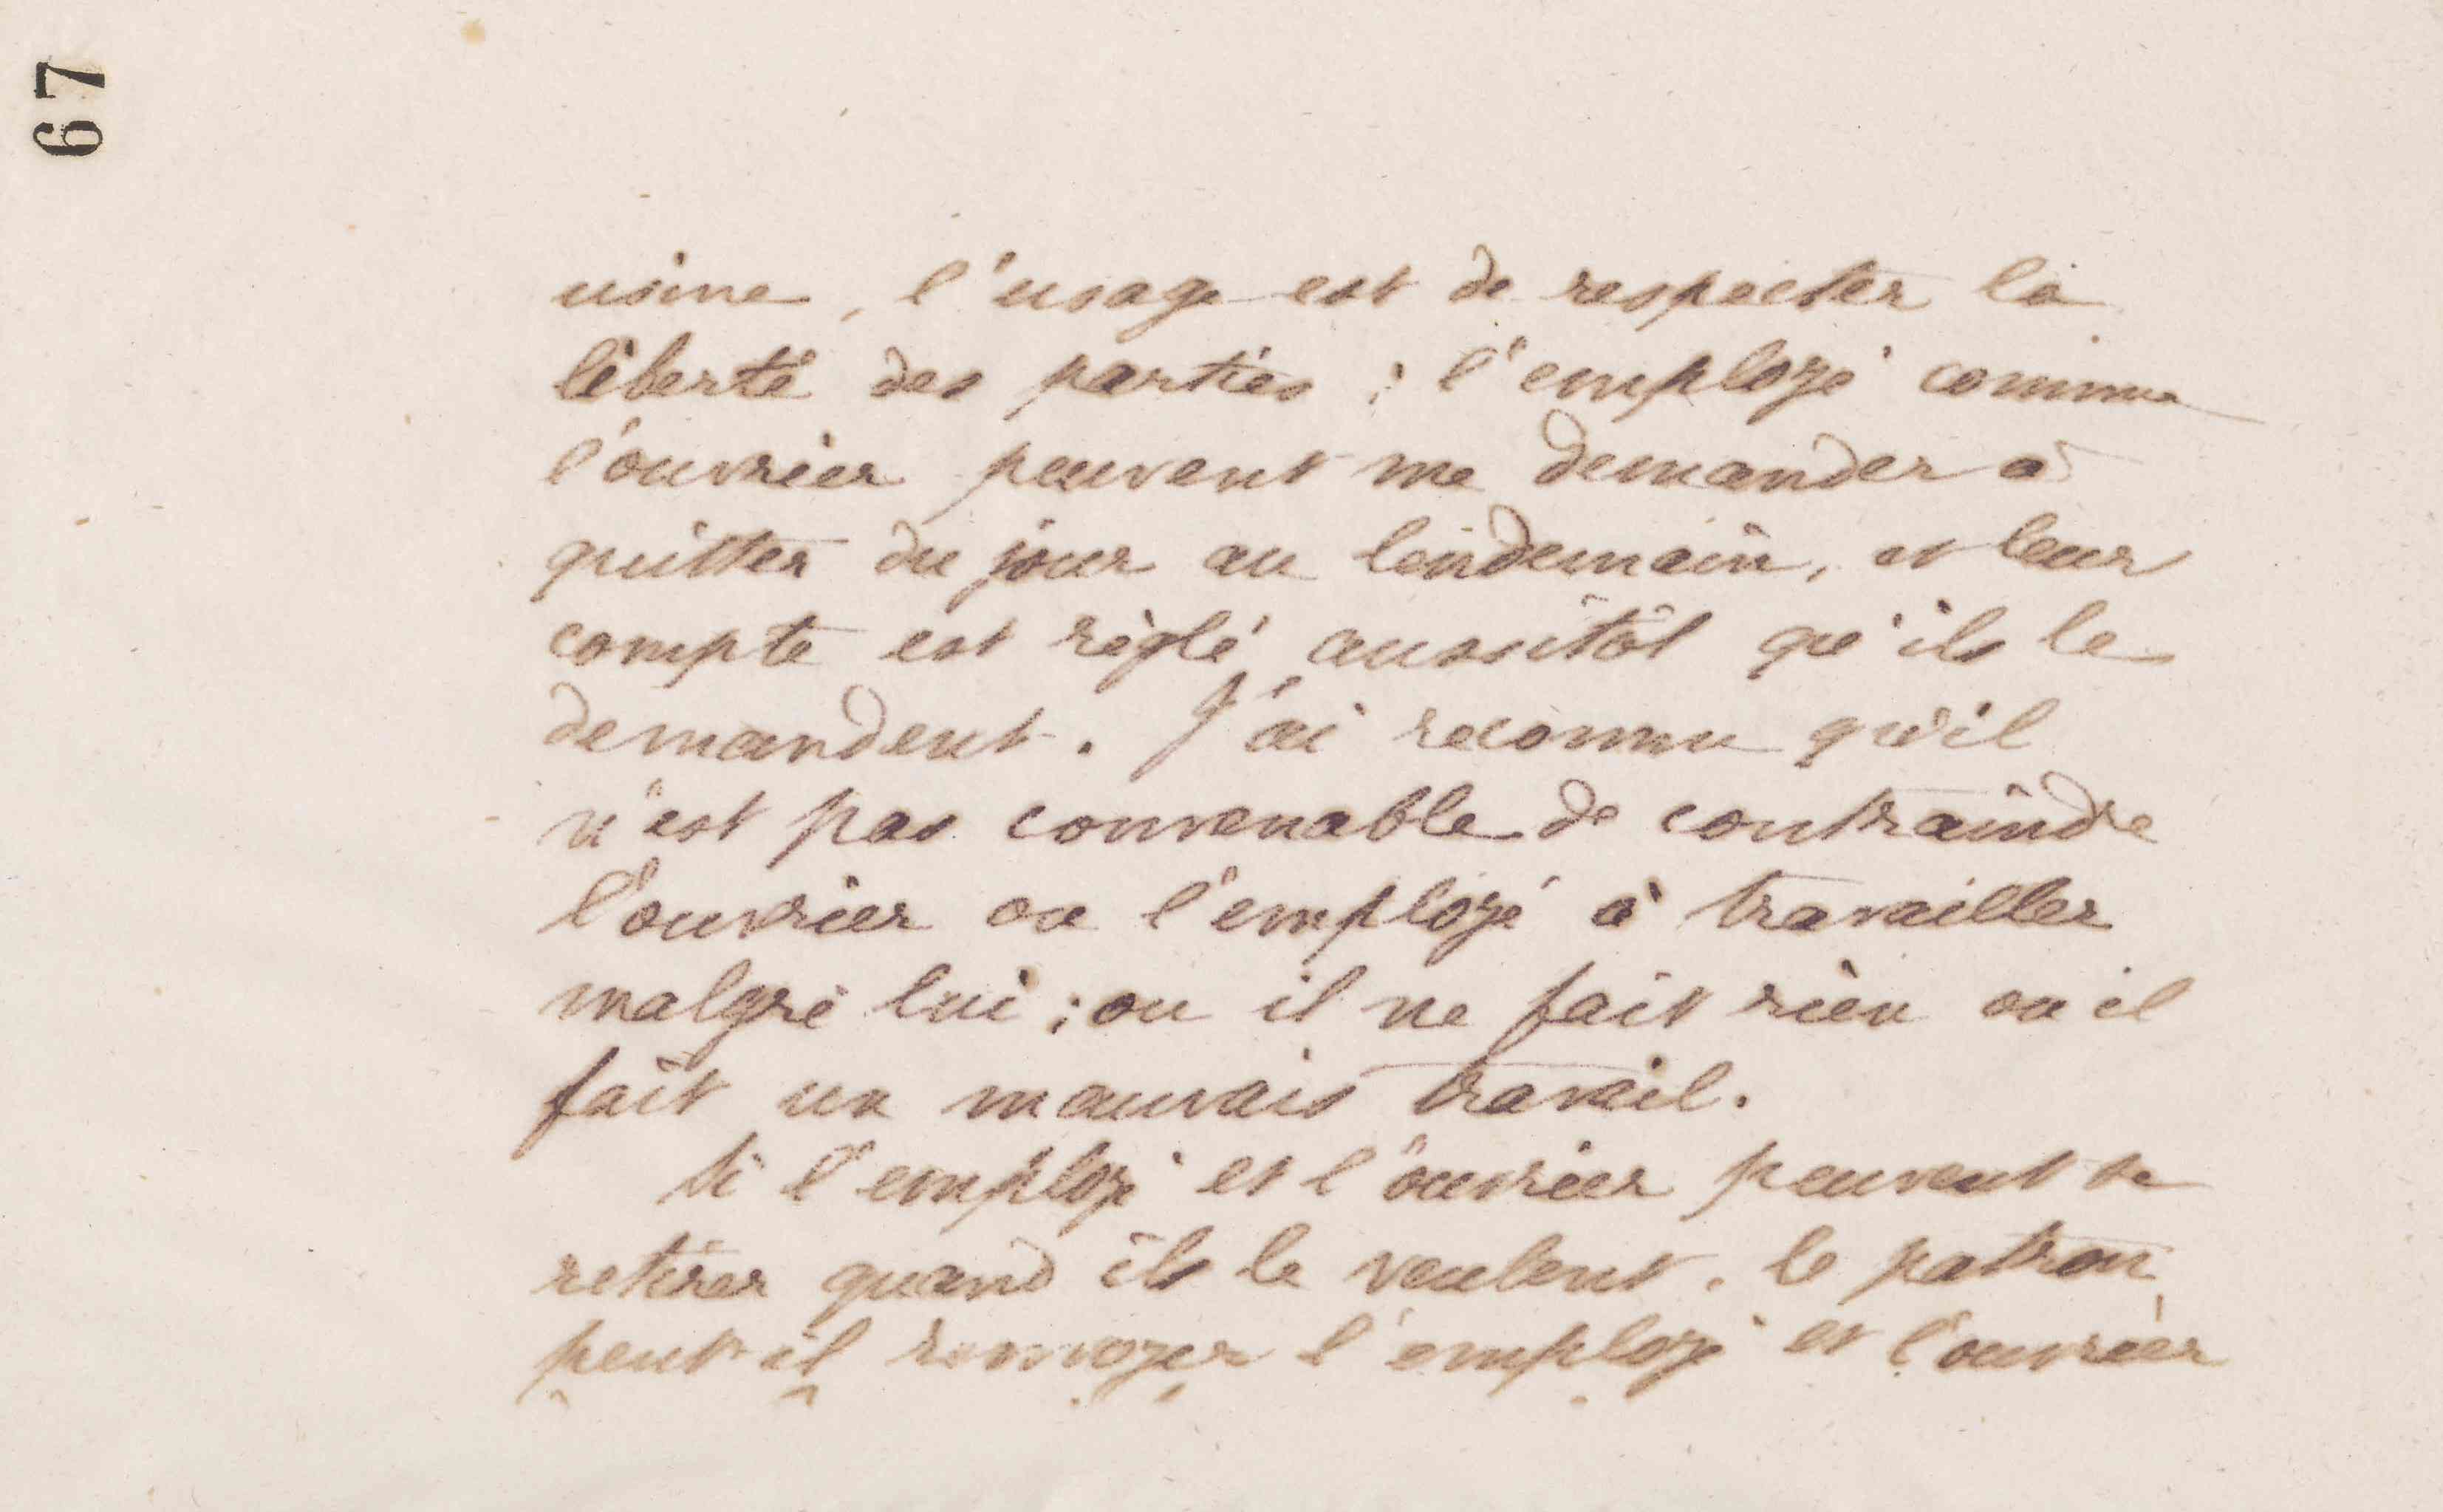 67
usine, l'usage est de respecter la
liberté des parties ; l'employé comme
l'ouvrier peuvent me demander à
quitter du jour au lendemain, et leur
compte est réglé aussitôt qu'ils le
demandent. J'ai reconnu qu'il
n'est pas convenable de contraindre
l'ouvrier ou l'employé à travailler
malgré lui ; ou il ne fait rien ou il
fait un mauvais travail.
Si l'employé et l'ouvrier peuvent se
retirer quand ils le veulent, le patron
peut-il renvoyer l'employé et l'ouvrier